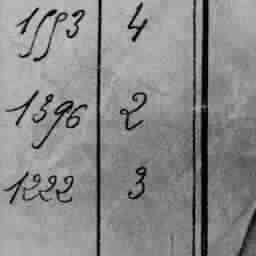 1553 4
1396 2
1222 3